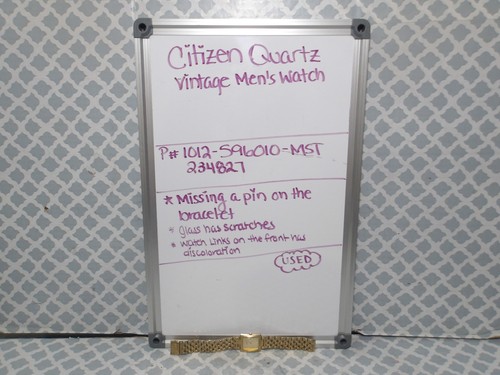 Citizen Quartz
Vintage Men's Watch
P# 1012-S96010-MST
234827
* Missing a pin on the
bracelet
* glass has scratches
* watch links on the front has
discoloration
USED